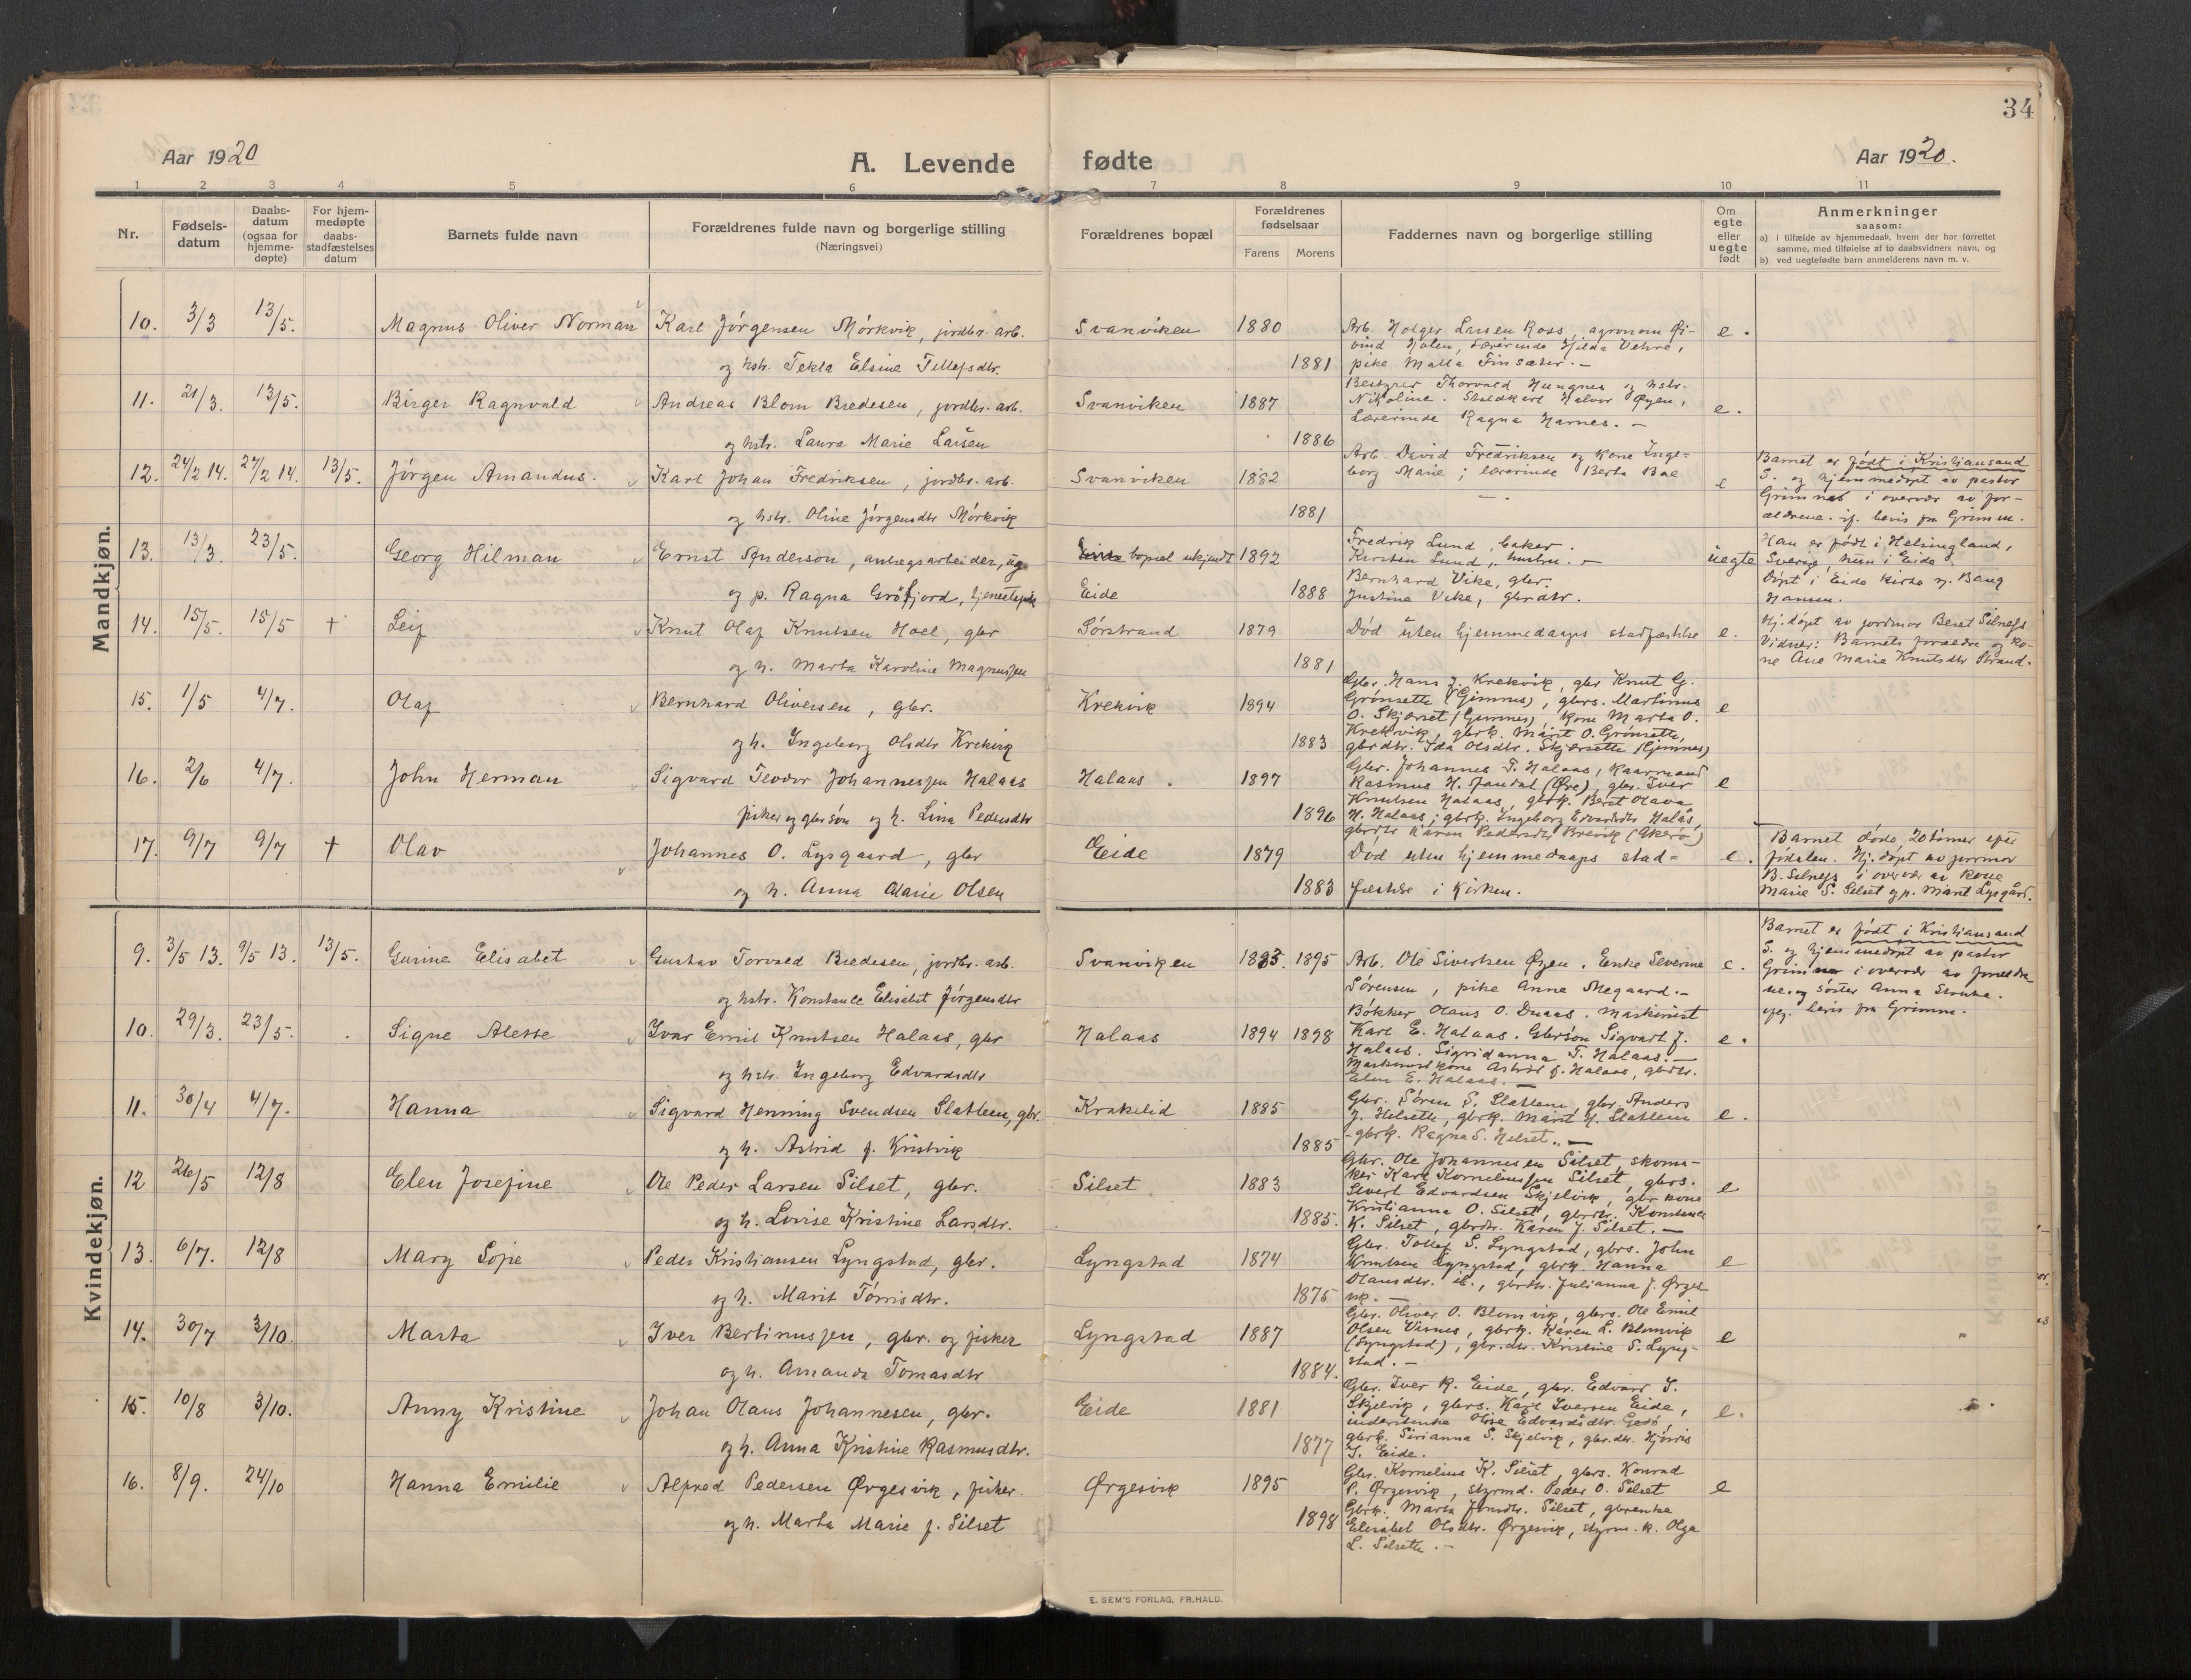 34
Aar 1920
A. Levende fødte
Aar 1920.
1 2 3 4 5 6 7 8 9 10 11
Nr.
Fødsels-
datum
Daabs-
datum
(ogsaa for
hjemme-
døpte)
For hjem-
medøpte
daabs-
stadfæstelses
datum
Barnets fulde navn
Forældrenes fulde navn og borgerlige stilling
(Næringsvei)
Forældrenes bopæl
Forældrenes
fødselsaar
Farens Morens
Faddernes navn og borgerlige stilling
Om
egte
eller
uegte
født
Anmerkninger
saasom:
a) i tilfælde av hjemmedaab, hvem der har forrettet
samme, med tilføielse af to daabsvidners navn, og
b) ved uegtefødte barn anmelderens navn m. v.
Mandkjøn.
10. 3/3 13/5. Magnus Oliver Norman
Karl Jørgensen Mørkvik, jordbr. arb.
og hstr. Tekla Elsine Tellefsdtr.
Svanviken 1880
1881
Arb. Holger Larsen Ross, agronom Øi-
vind Holen, Lærerinde Hilda Vehre,
pike Malla Finsæter. -
e.
11. 21/3. 13/5. Birger Ragnvald
Andreas Blom Bredesen, jordbr. arb.
og hstr. Laura Marie Larsen
Svanviken 1887
1886
Bestyrer Thorvald Hungnes og hstr.
Nikoline. Staldkarl Halvor Øyen,
Lærerinde Ragna Harnes. -
e.
12. 24/2 14. 27/2 14. 13/5. Jørgen Amandus.
Karl Johan Fredriksen, jordbr. arb.
og hstr. Oline Jørgensdtr Mørkvik
Svanviken 1882
1881
Arb. David Fredriksen og kone Inge-
borg Marie; lærerinde Berta Boe
e
Barnet er født i Kristiansand
S. og hjemmedøpt av pastor
Grimnes i overvær av for-
ældrene. if. bevis fra Grimm.
13. 13/3. 23/5. Georg Hilman
Ernst Anderson, anlegsarbeider, ug
og p. Ragna Grøfjord, tjenestepike
Eide bopæl ukjendt 1892
Eide 1888
Fredrik Lund, baker.
Kirsten Lund, hustru. -
Bernhard Vike, gbr.
Justine Vike, gbrdtr.
uegte
Han er født i Helsingland,
Sverige, hun i Eide
Døpt i Eide kirke af Bang
Hansen.
14. 15/5. 15/5 † Leif
Knut Olaf Knutsen Hoel, gbr
og h. Marta Karoline Magnussen
Sørstrand 1879
1881
Død uten hjemmedaaps stadfæstelse
e.
Hj. døpt av jordmor Beret Silnes
Vidner: Barnets forældre og ko-
ne Ane Marie Knutsdtr Strand.
15. 1/5 4/7. Olaf
Bernhard Oliversen, gbr.
og h. Ingeborg Olsdtr Krekvik
Krekvik 1894
1883
Gbr. Hans J. Krekvik, gbr Knut G.
Grønsette (Gimnes), gbrs. Martinus
O. Skjærset (Gimnes), kone Marta O.
Krekvik, gbrk. Marit O. Grønsette,
gbrdtr. Ida Olsdtr. Skjærsette (Gimnes)
e
16. 2/6 4/7. John Herman
Sigvard Teodor Johannessen Halaas
fisker og gbrsøn og h. Lina Pedersdtr
Halaas. 1897
1896
Gbr. Johannes T. Halaas, kaarmand
Rasmus H. (Øre), gbr. Iver
Knutsen Halaas, gbrk. Beret Olava
H. Halaas; gbrk. Ingeborg Edvardsdtr Halås,
gbrdtr Karen Pedersdtr Brevik (Akerø)
e
17. 9/7 9/7 † Olav
Johannes O. Lysgaard, gbr
og h. Anna Marie Olsen
Eide 1879
1883
Død uten hjemmedaaps stad-
fæstelse i kirken.
e.
Barnet døde 20 timer efter
fødselen. Hj. døpt av jormor
B. Silnes i overvær av kone
Marie S. Silset og p. Marit Lysgård.
Kvindekjøn.
9. 3/5 13. 9/5 13. 13/5. Gurine Elisabet
Gustav Torvald Bredesen, jordbr. arb.
og hstr. Konstance Elisabet Jørgensdtr
Svanviken 1883. 1895
Arb. Ole Sivertsen Øyen. Enke Severine
Sørensen, pike Anne Megaard. -
e.
Barnet er født i Kristiansand
S. og hjemmedøpt av pastor
Grimnes i overvær av forældre
ne og søster Anna
bevis fra Grimm.
10. 29/3. 23/5. Signe Alette
Ivar Emil Knutsen Halaas, gbr
og hstr. Ingeborg Edvardsdtr
Halaas 1894 1898
Bøkker Olaus O. Duaas. Maskinist
Karl E. Halaas. Gbrsøn Sigvart J.
Halaas. Sigridanna T. Halaas. -
Maskinistkone Astrid f. Halaas, gbrdtr.
Elen E. Halaas. -
e.
11. 30/4 4/7. Hanna
Sigvard Henning Svendsen Slatlem, gbr.
og h. Astrid f. Kristvik
Krakelid 1885
1885
Gbr. Søren S. Slatlem, gbr. Anders
J. Helsette, gbrk. Marit H. Slatlem
- gbrk. Ragna S. Helset. -
e.
12 26/5 12/8 Elen Josefine
Ole Peder Larsen Silset, gbr.
og h. Lovise Kristine Larsdtr.
Silset 1883
1885.
Gbr. Ole Johannesen Silset, skoma-
ker Karl Korneliussen Silset, gbrs.
Sivert Edvardsen Skjelvik, gbr kone
Kristianna O. Silset, gbrdtr. Konstanse
K. Silset, gbrdtr. Karen J. Silset. -
e
13. 6/7. 12/8 Mary Sofie
Peder Kristiansen Lyngstad, gbr.
og h. Marit Tørrisdtr.
Lyngstad 1874
1875
Gbr. Tollef S. Lyngstad, gbrs. John
Knutsen Lyngstad, gbrk. Hanna
Olausdtr. ib., gbrdtr. Julianna J. Ørges
vik. -
e
14. 30/7 3/10. Marta
Iver Bertinussen, gbr. og fisker
og h. Amanda Tomasdtr
Lyngstad 1887
1884.
Gbr. Oliver O. Blomvik, gbrs. Ole Emil
Olsen Visnes, gbrk. Karen L. Blomvik
(Lyngstad), gbr.dtr. Kristine S. Lyng-
stad. -
e
15. 10/8 3/10. Anny Kristine
Johan Olaus Johannesen, gbr.
og h. Anna Kristine Rasmusdtr.
Eide 1881
1877
Gbr. Iver R. Eide, gbr. Edvard S.
Skjelvik, gbrs. Karl Iversen Eide,
Edvardsdtr.
gbrk. Sirianna S. Skjelvik, gbr.dtr.
I. Eide.
e.
16. 8/9. 24/10 Hanna Emilie
Alfred Pedersen Ørgesvik, fisker.
og h. Marta Marie f. Silset
Ørgesvik 1895
1898
Gbr. Kornelius K. Silset, gbrs. Konrad
P. Ørgesvik, styrmd. Peder O. Silset
Gbrk. Marta Jonsdtr. Silset, gbrenke
Elisabet Olsdtr. Ørgesvik, styrm. k. Olga
L. Silsette. -
e
E. SEM'S FORLAG, FR.HALD.